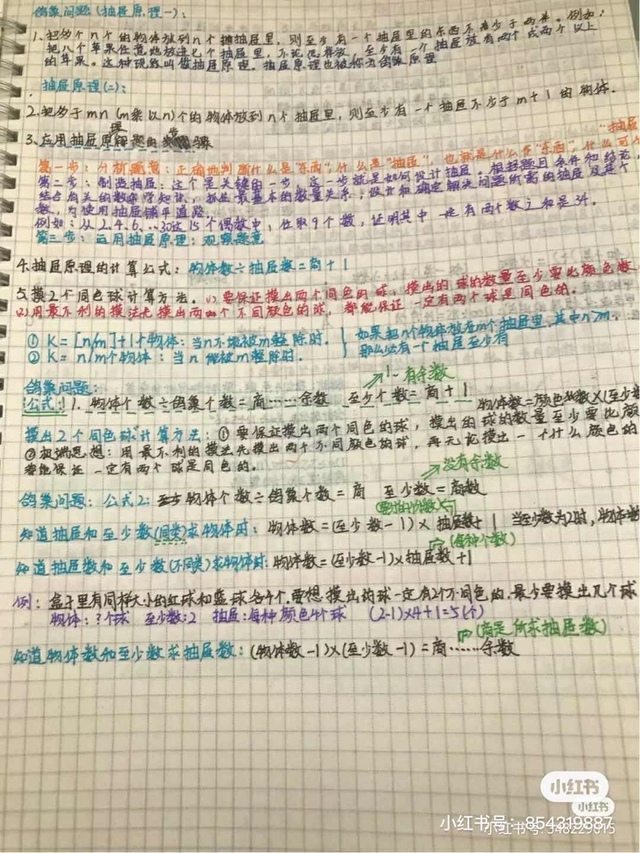 鸽巢问题(抽屉原理一):
1.把多个n个的物体放到n个抽屉里,则至少有一个抽屉里的东西不少于两件。例如:
把八个苹果任意地放进七个抽屉里,不论怎样放,至少有一个抽屉放有两个或两个以上
的苹果。这种现象叫做抽屉原理。抽屉原理也被称为鸽巢原理
抽屉原理(二):
2.把多于mn(m乘以n)个的物体放到n个抽屉里,则至少有一个抽屉不少于m+1的物体.
3.应用抽屉原理题的步骤
第一步:分析题意:正确地判断什么是"东西",什么是"抽屉",也就是什么作"东西",什么可
"抽屉"
第二步:制造抽屉:这个是关键的一步,这一步就是如何设计抽屉。根据题目条件和结论
结合有关的数学知识,抓住最基本的数量关系,设计和确定解决问题所需的抽屉及其个
数,为使用抽屉铺平道路。
例如:从2.4.6、…30这15个偶数中,任取9个数,证明其中一定有两个数之和是34。
第三步:运用抽屉原理:观察题意
4.抽屉原理的计算公式:物体数÷抽屉数=商+1
5.摸2个同色球计算方法。(1)要保证摸出两个同色的球,摸出的球的数量至少要比颜色数
(2)用最不利的摸法先摸出两个不同颜色的球,都能保证一定有两个球是同色的。
① K=[n/m]+1个物体:当n不能被m整除时.
② K=n/m个物体:当n能被m整除时.
如果把n个物体放在m个抽屉里,其中n>m,
那么必有一个抽屉至少有
鸽巢问题:
有余数
公式:1.物体个数÷鸽巢个数=商……余数 至少个数=商+1
物体数=颜色数×(至少
摸出2个同色球计算方法:①要保证摸出两个同色的球,摸出的球的数量至少要比颜
②极端思想:用最不利的摸法先摸出两个不同颜色的球,再无论摸出一个什么颜色的
都能保证一定有两个球是同色的。
没有余数
鸽巢问题:公式2:物体个数÷鸽巢个数=商 至少数=商数
知道抽屉和至少数(同类)求物体时:物体数=(至少数-1)×抽屉数+1 当至少数为2时,物体数
(每种个数)
知道抽屉数和至少数(不同类)求物体时:物体数=(至少数-1)×抽屉数+1
例:盒子里有同样大小的红球和蓝球各4个.要想摸出的球一定有2个不同色的.最少要摸出几个球
物体:?个球 至少数:2 抽屉:每种颜色4个球 (2-1)×4+1=5(个)
(商是所求抽屉数)
知道物体数和至少数求抽屉数:(物体数-1)×(至少数-1)=商……余数
小红书
小红书
小红书号:854319887
小红书号:348229815